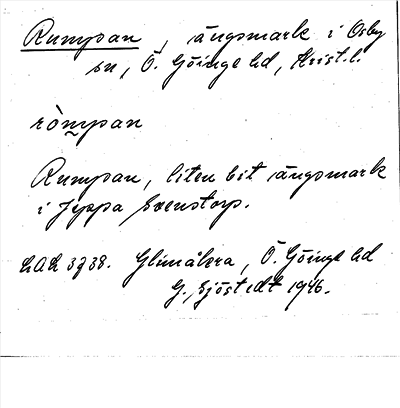 Rumpan, ängsmark i Osby
sn, Ö. Göinge hd, Krist. l.
ròmpan
Rumpan, liten bit ängsmark
i Jeppa Svenstorp.
LAL 3738. Glimåkra, Ö. Göinge hd
G. Sjöstedt 1946.